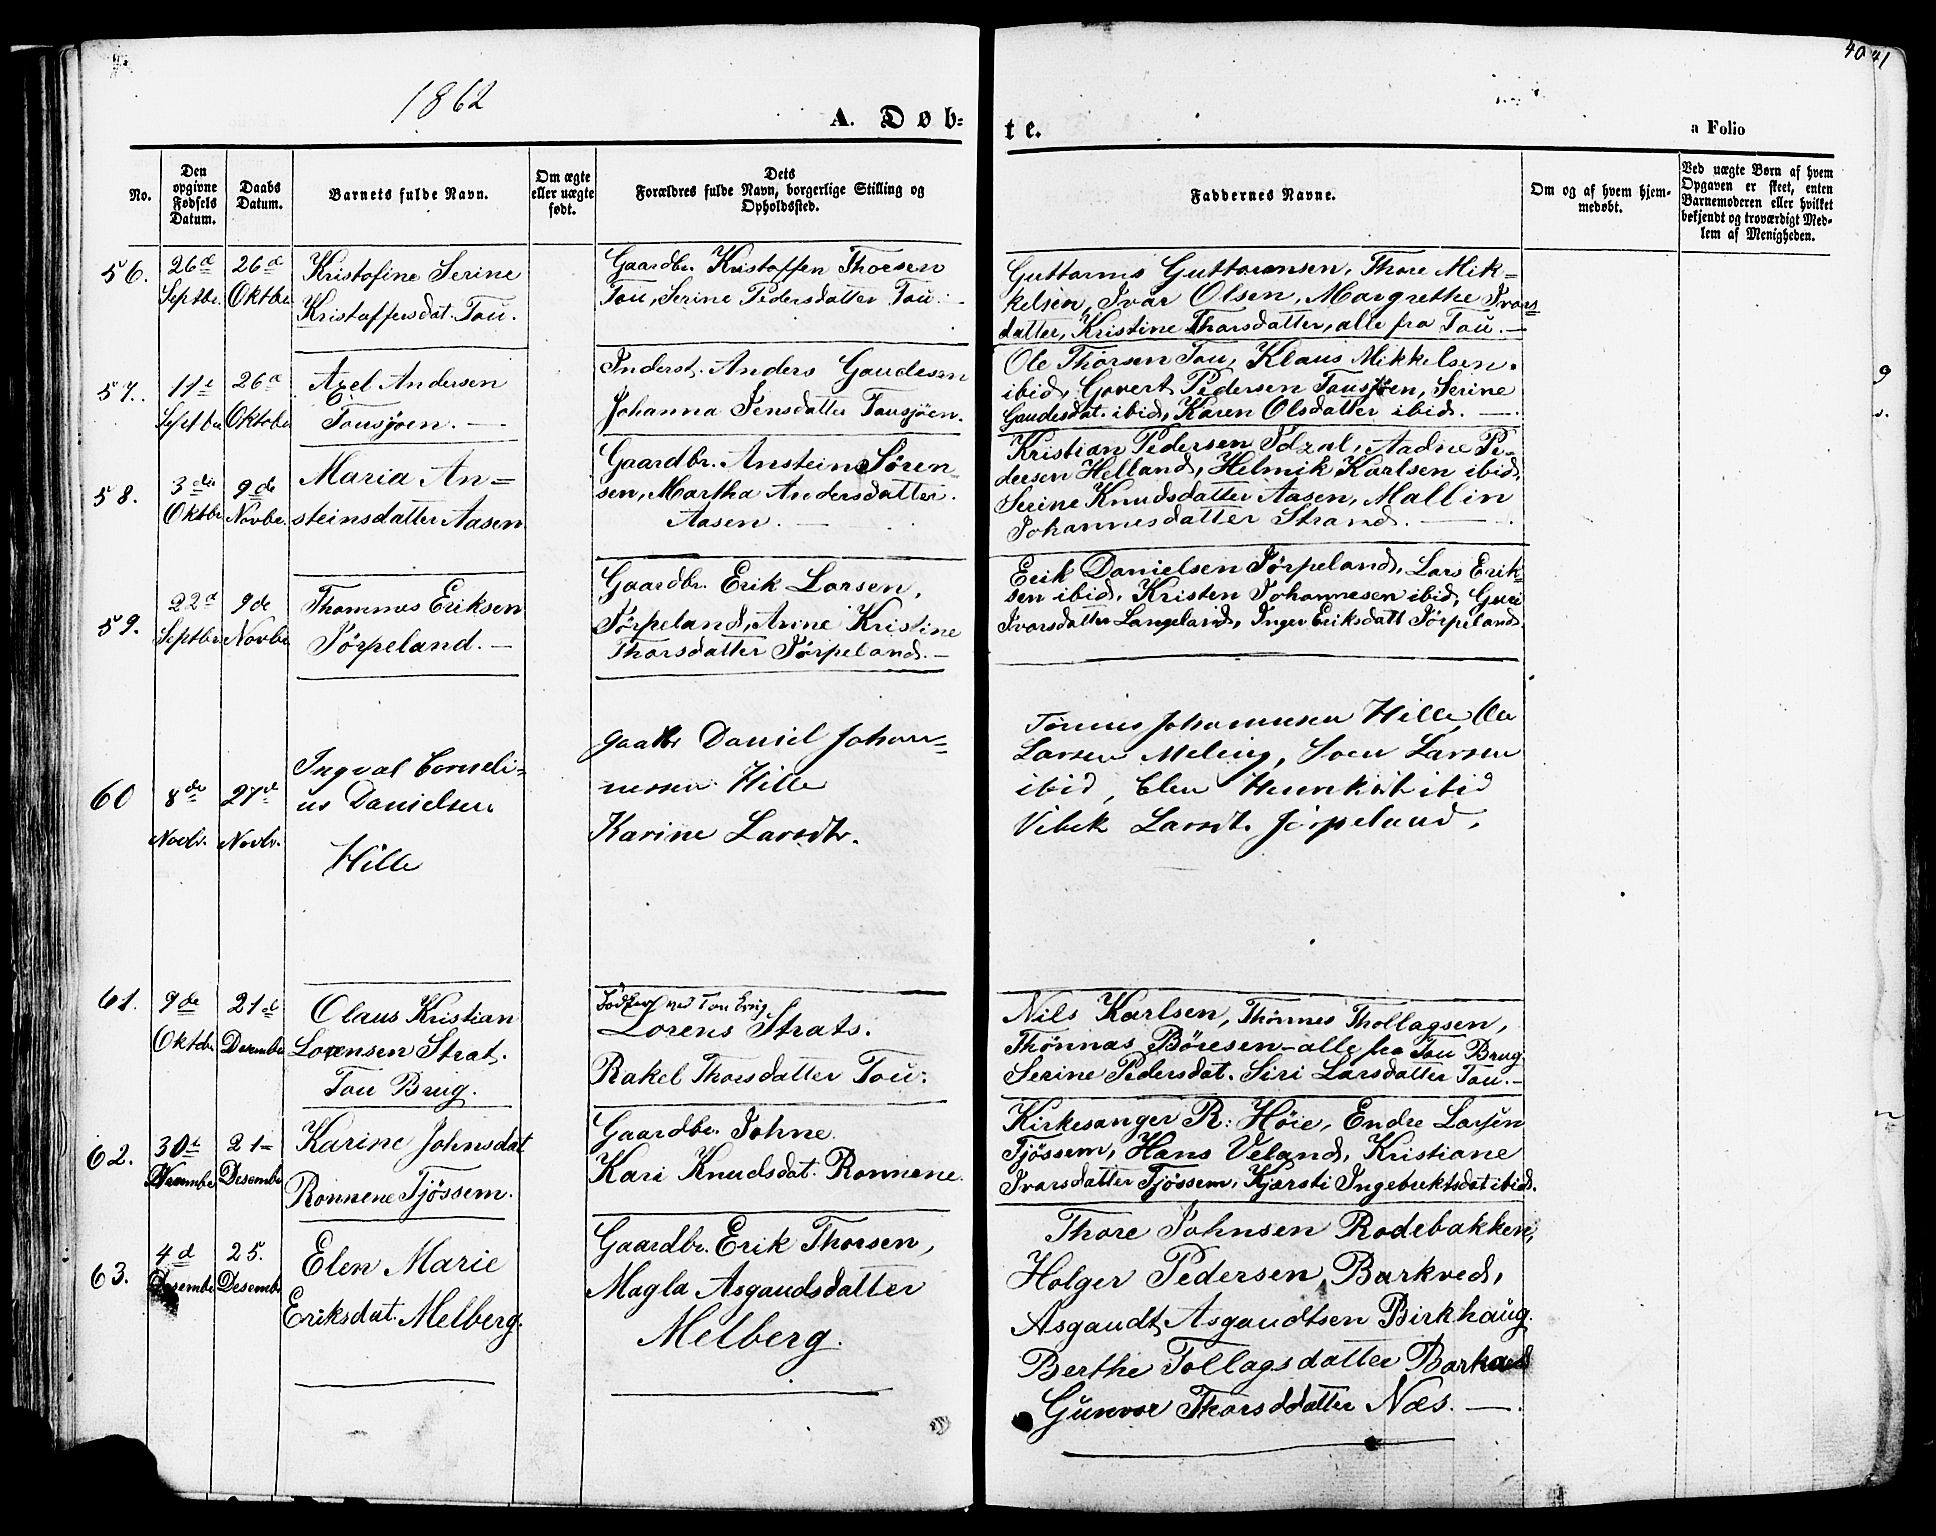 1862
A. Døb=
te.
a Folio
40 41
No.
Den opgivne Fødsels Datum.
Daabs Datum.
Barnets fulde Navn.
Om ægte eller uægte født.
Dets
Forældres fulde Navn, borgerlige Stilling og
Opholdssted.
Faddernes Navne.
Om og af hvem hjem-
medøbt.
Ved uægte Børn af hvem
Opgaven er skeet, enten
Barnemoderen eller hvilket
bekjendt og troværdigt Med-
lem af Menigheden.
56.
26d Septbr.
26d Oktbr.
Kristofine Serine
Kristoffersdat. Tou.
Gaardbr. Kristoffen Thorsen
Tou, Serine Pedersdatter Tou.
Guttorms Guttormsen, Thore Mik=
kelsen, Ivar Olsen, Margrethe Ivars=
datter, Kristine Thorsdatter, alle fra Tou. —
57.
11t Septbr
26d Oktober
Axel Andersen
Tousjøen. —
Inderst. Anders Gaudesen
Johanna Jensdatter Tousjöen.
Ole Thorsen Tou, Klaus Mikkelsen.
ibid, Govert Pedersen Tousjøen, Serine
Gaudesdat. ibid, Karen Olsdatter ibid. —
58.
3die Oktbr
9de Novbr.
Maria An=
steinsdatter Aasen
Gaardbr. Anstein Sören=
sen, Martha Andersdatter.
Aasen. —
Kristian Pedersen Idzal, Aadne Pe=
dersen Helland, Helmik Karlsen ibid,
Serine Knudsdatter Aasen, Mallin
Johannesdatter Strand. —
59.
22d Septbr
9de Novbr
Thommas Eriksen
Jörpeland. —
Gaardbr. Erik Larsen,
Jörpeland, Anne Kristine
Thorsdatter Jörpeland. —
Erik Danielsen Jørpeland, Lars Erik=
sen ibid, Kristen Johannesen ibid, Guri
Ivarsdatter Langeland, Inger Eriksdatt Jörpeland.
60
8de Novbr.
27de Novbr.
Ingval Corneli=
us Danielsen
Hille
gaardbr Daniel Johan=
nessen Hille
Karine Larsdtr.
Tönnes Johannesen Hille, Ole
Larsen Meling, Soen Larsen
ibid, Elen ibid
Vibek Larsdt. Jörpeland,
61.
9de Oktbr
21de Desember
Olaus Kristian
Lorensen Strat.
Tou Brug.
ved Tou Brug.
Lorens Strats.
Rakel Thorsdatter Tou.
Nils Karlsen, Thönnes Thollagsen,
Thönnas Böresen — alle fra Tou Brug
Serine Pedersdat. Siri Larsdatter Tou. —
62.
30t
21= Desember
Karine Johnsdat
Ronnene Tjössem.
Gaardbr. Johne
Kari Knudsdat. Ronnene.
Kirkesanger R: Höie, Endre Larsen
Tjössem, Hans Veland, Kristiane
Ivarsdatter Tjössem, Kjersti Ingebrektsdat ibid.
63.
4d Desember
25. Desember
Elen Marie
Eriksdat. Melberg.
Gaardbr. Erik Thorsen,
Magla Asgaudsdatter
Melberg.
Thore Johnsen Rodebakken,
Holger Pedersen Barkved,
Asgaudt Asgaudtsen Birkhaug.
Berthe Tollagsdatter Barkved
Gunvor Thorsddatter Næs. —